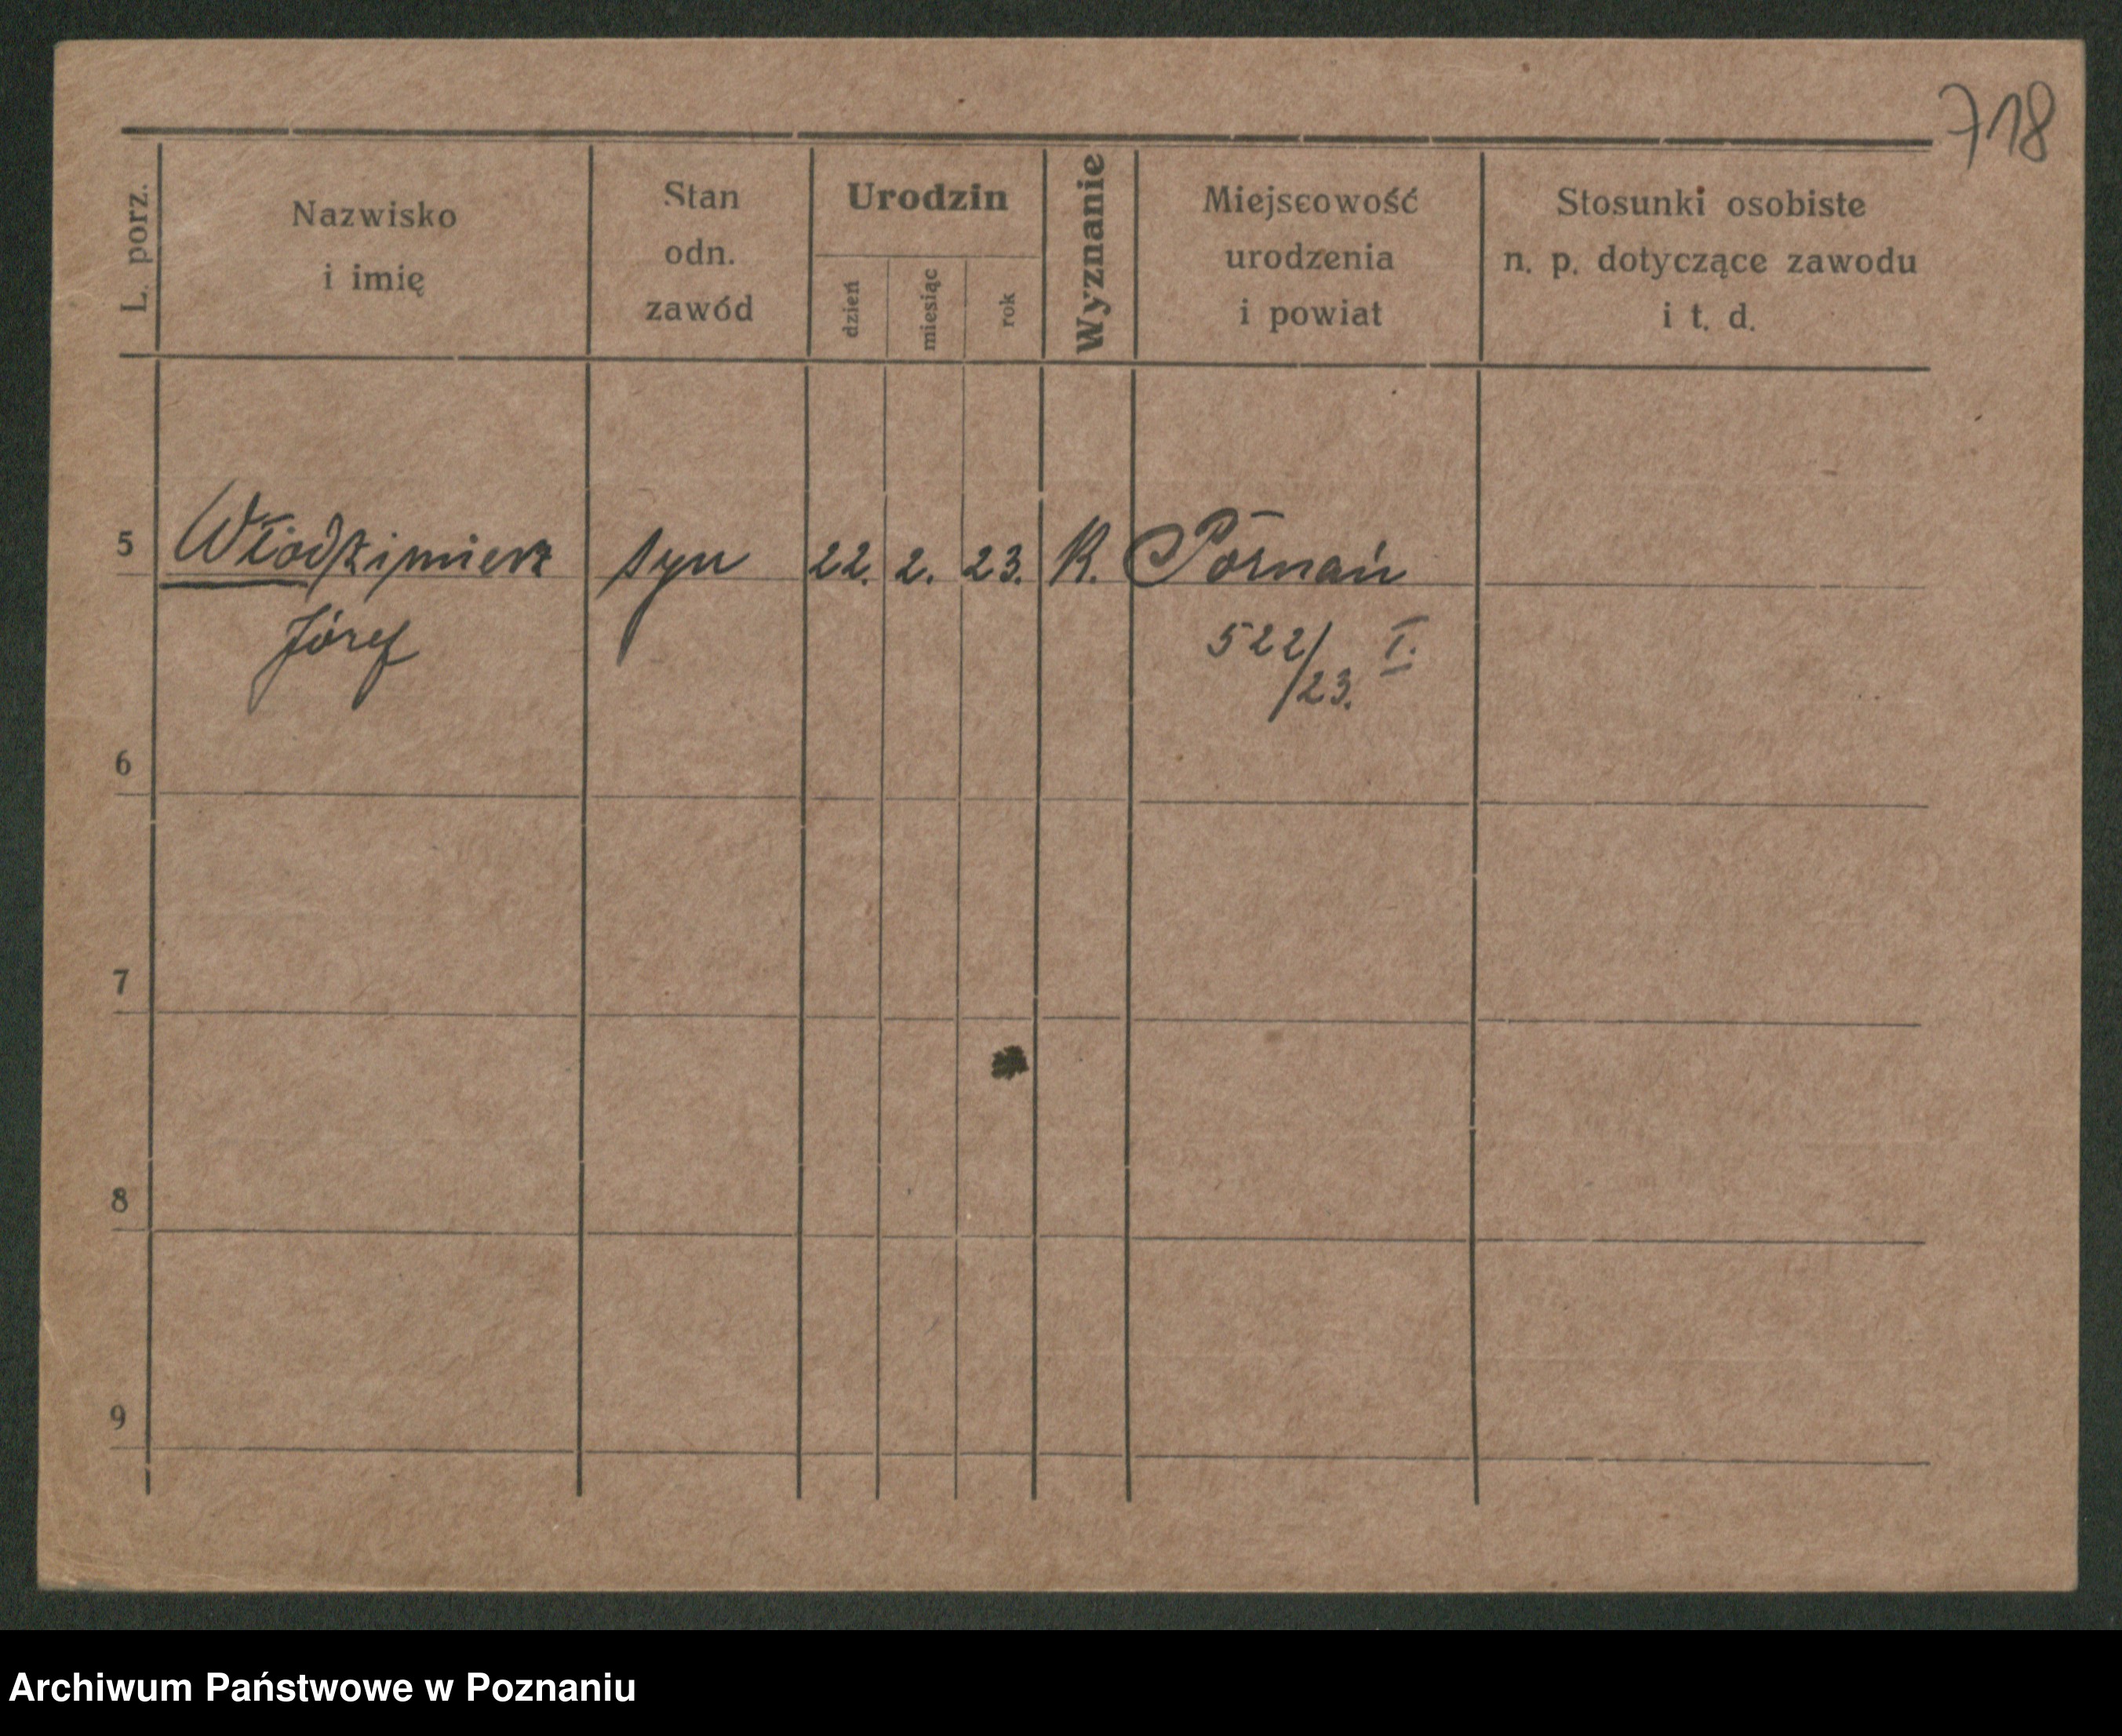 718
L. porz.
Nazwisko
i imię
Stan
odn.
zawód
Urodzin
dzień
miesiąc
rok
Wyznanie
Miejscowość
urodzenia
i powiat
Stosunki osobiste
n. p. dotyczące zawodu
i t. d.
5 Włodzimierz syn 22. 2. 23. K. Poznań
Józef 522/23. I.
6
7
8
9
Archiwum Państwowe w Poznaniu